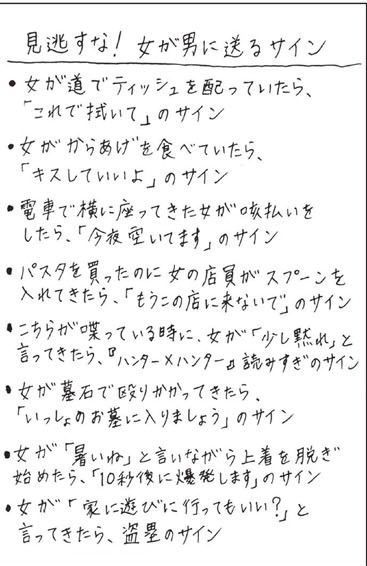 見逃すな！ 女が男に送るサイン
• 女が道でティッシュを配っていたら、
「これで拭いて」のサイン
• 女がからあげを食べていたら、
「キスしていいよ」のサイン
• 電車で横に座ってきた女が咳払いを
したら、「今夜空いてます」のサイン
• パスタを買ったのに女の店員がスプーンを
入れてきたら、「もうこの店に来ないで」のサイン
• こちらが喋っている時に、女が「少し黙れ」と
言ってきたら、『ハンター×ハンター』読みすぎのサイン
• 女が墓石で殴りかかってきたら、
「いっしょのお墓に入りましょう」のサイン
• 女が「暑いね」と言いながら上着を脱ぎ
始めたら、「10秒後に爆発します」のサイン
• 女が「家に遊びに行ってもいい？」と
言ってきたら、盗塁のサイン